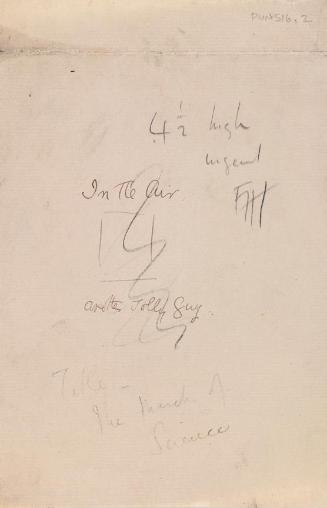 PUN516.2
4 1/2 high
urgent
In The Air
14
another Jolly Guy.
Title -
The March of
Science